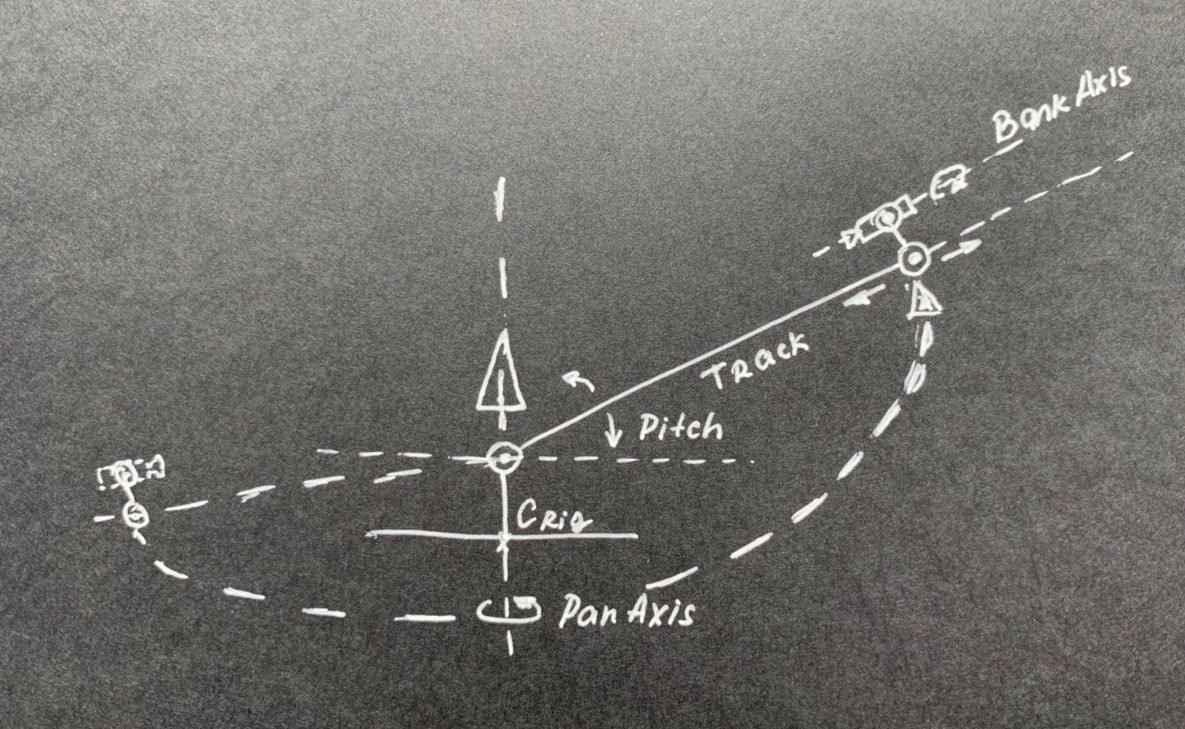 Bank Axis
Track
Pitch
CRig
Pan Axis